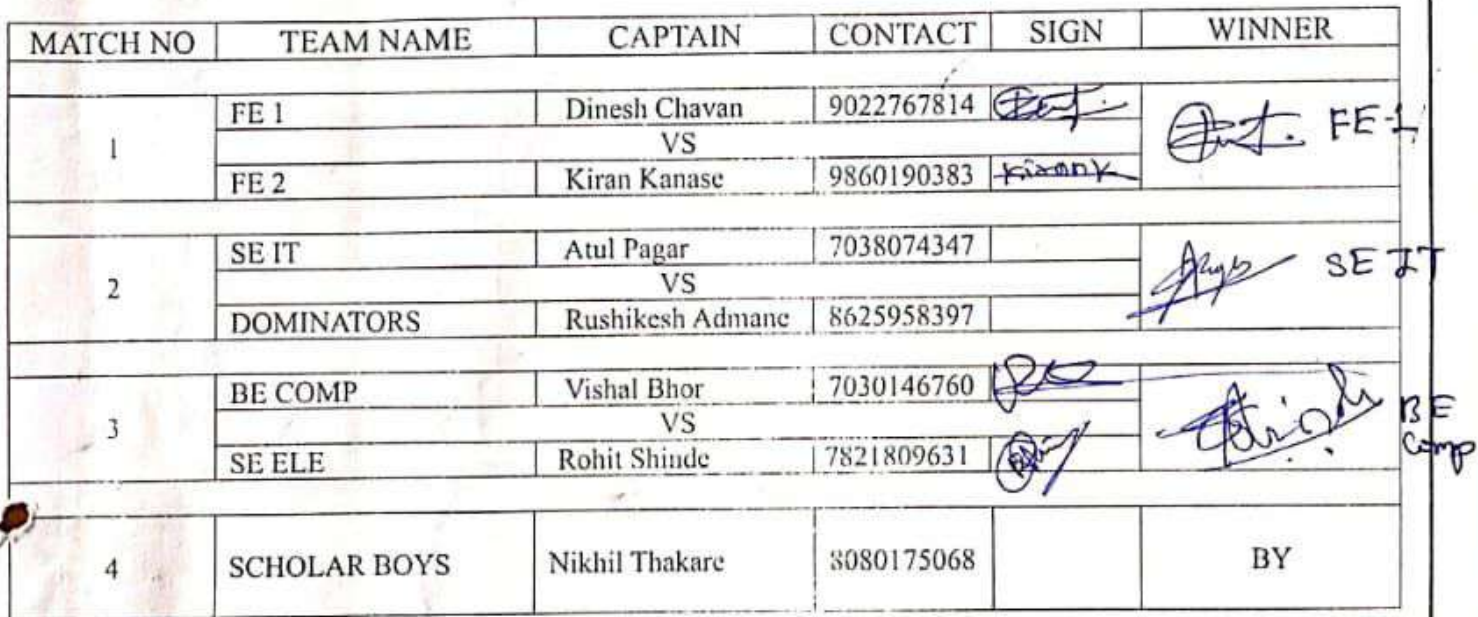 MATCH NO TEAM NAME CAPTAIN CONTACT SIGN WINNER
1 FE 1 Dinesh Chavan 9022767814 FE-1
VS
FE 2 Kiran Kanase 9860190383 KiranK
2 SE IT Atul Pagar 7038074347 SE IT
VS
DOMINATORS Rushikesh Admane 8625958397
3 BE COMP Vishal Bhor 7030146760 BE Comp
VS
SE ELE Rohit Shinde 7821809631
4 SCHOLAR BOYS Nikhil Thakare 8080175068 BY